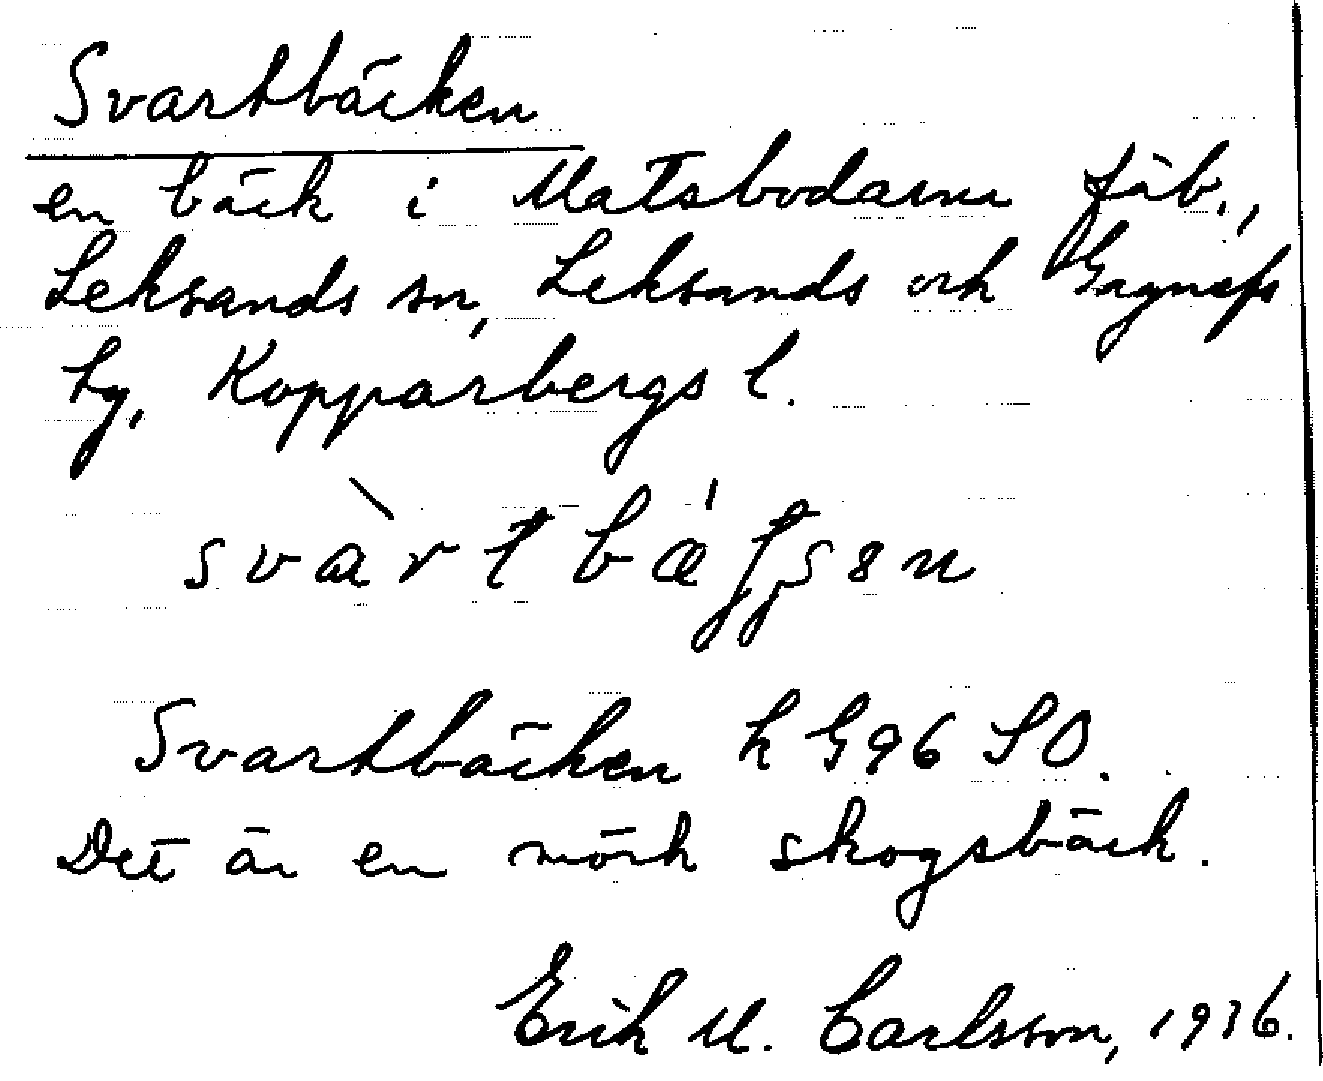 Svartbäcken
en bäck i Matsbodarna fäb.,
Leksands sn, Leksands och Gagnefs
tg, Kopparbergs l.
Svartbäcken k G96 SO.
Det är en mörk skogsbäck.
Erik M. Carlsson, 1936.